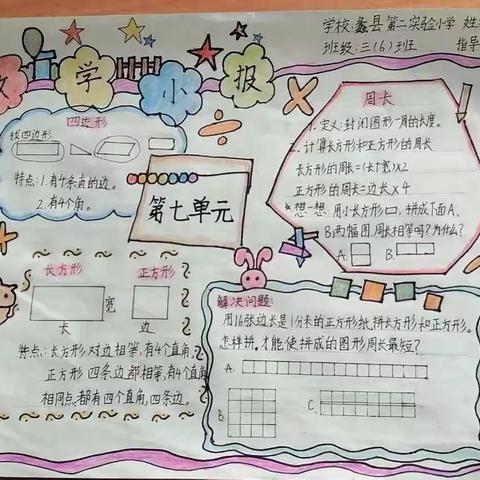 学校:蠡县第二实验小学 姓
班级:三(6)班班
指导
数学小报
四边形
找四边形
特点:1.有4条直的边。
2.有4个角。
第七单元
周长
1.定义:封闭图形一周的长度。
2.计算长方形和正方形的周长
长方形的周长=(长+宽)×2
正方形的周长=边长×4
想一想:用小长方形口,拼成下面A、
B两幅图,周长相等吗?为什么?
A.
B.
长方形
正方形
宽
长
边
特点:长方形对边相等,有4个直角,
正方形四条边都相等,有4个直角
相同点:都有四个直角,四条边。
解决问题:
用16张边长是1分米的正方形纸,拼长方形和正方形。
怎样拼,才能使拼成的图形周长最短?
A.
B.
C.